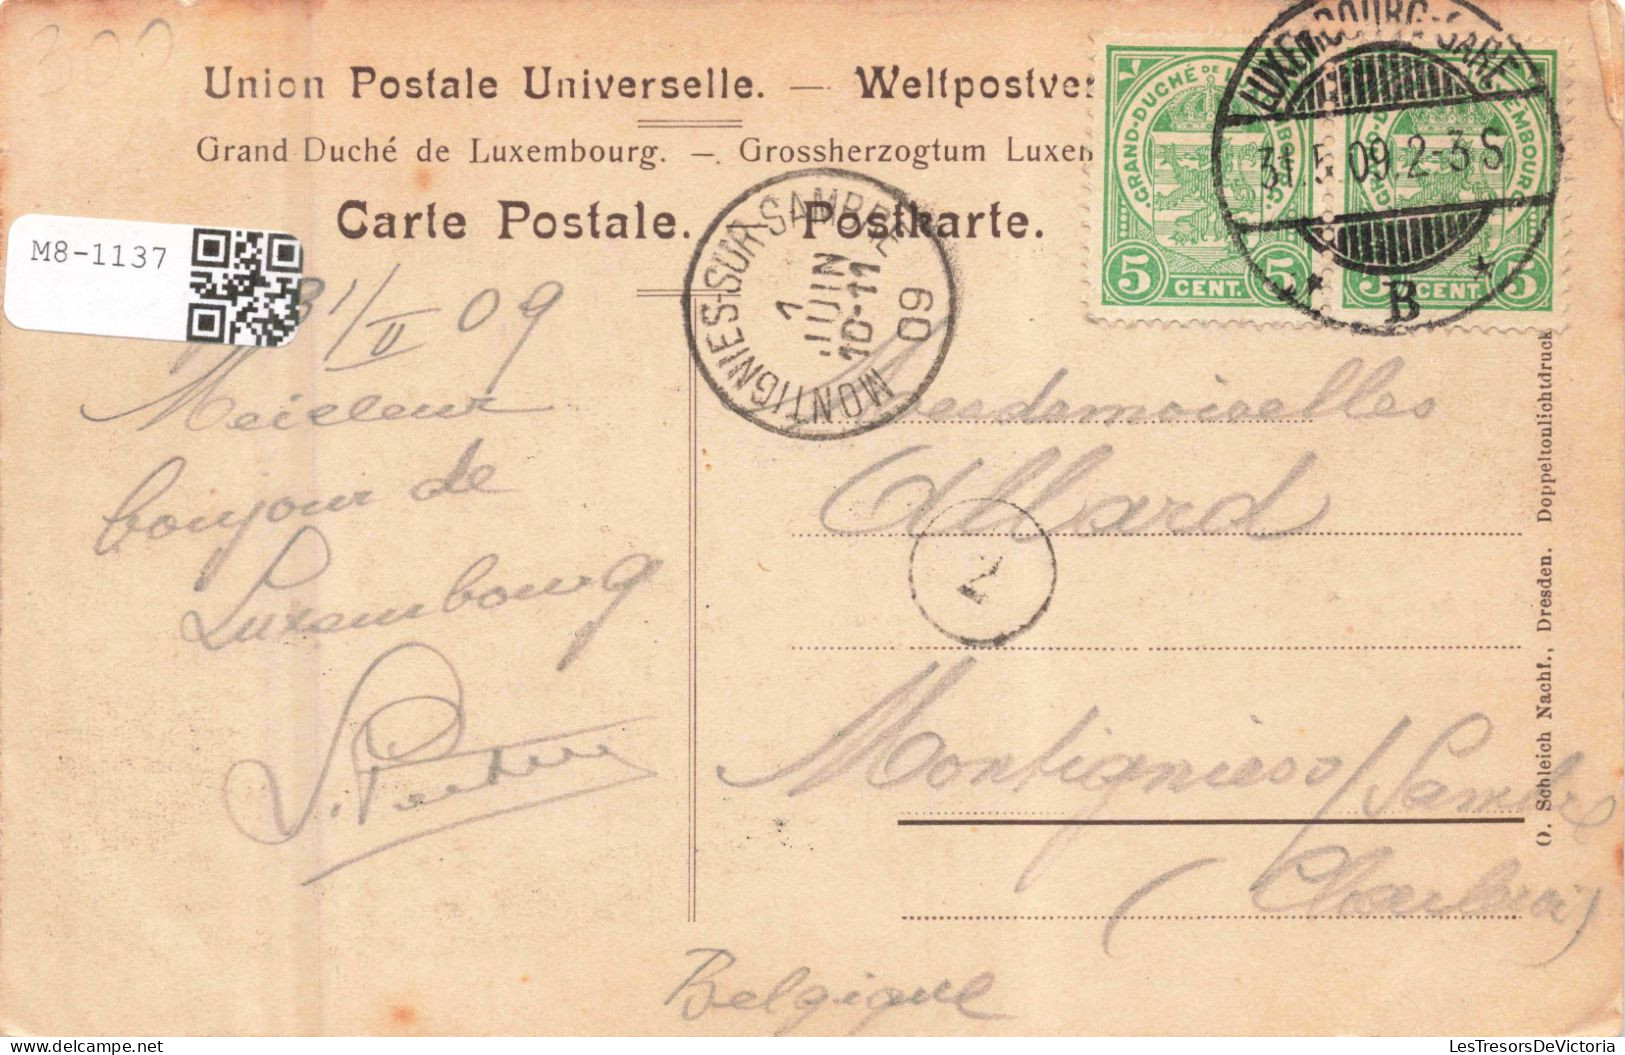 300
Union Postale Universelle. — Weltpostver
Grand Duché de Luxembourg. — Grossherzogtum Luxem
Carte Postale. Postkarte.
M8-1137
GRAND-DUCHÉ DE LUXEMBOURG.
5 CENT. 5
GRAND-DUCHÉ DE LUXEMBOURG.
5 CENT. 5
LUXEMBOURG-GARE
31.5.09.2-3 S
* B *
MONTIGNIES-SUR-SAMBRE
1
JUIN
10-11
09
31/II 09
Meilleur
bonjour de
Luxembourg
Mesdemoiselles
Allard
2
Montignies s/Sambre
(Charleroi)
Belgique
O. Schleich Nachf., Dresden. Doppeltonlichtdruck
LesTresorsDeVictoria